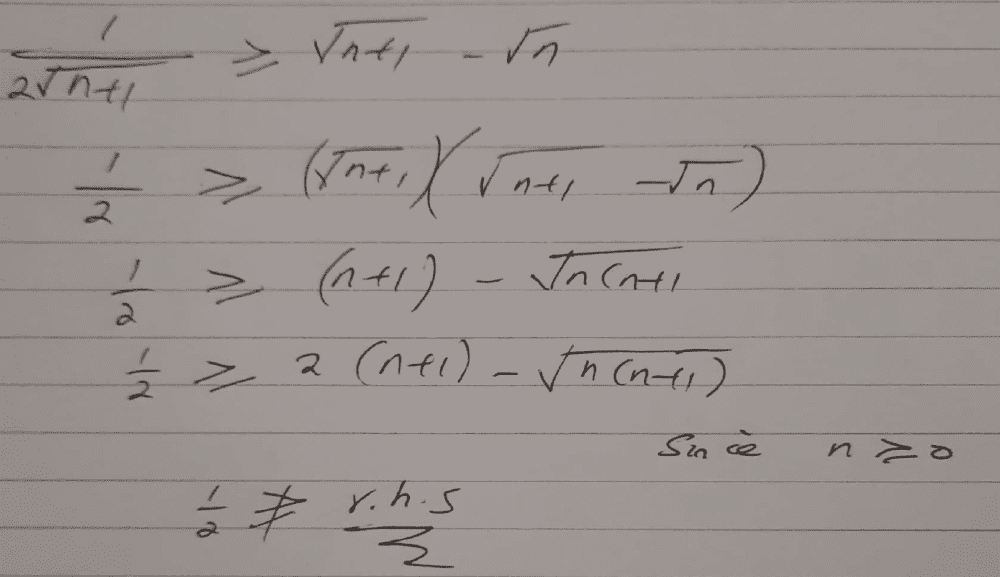 1/(2√n+1) ≥ √n+1 - √n
1/2 ≥ (√n+1)(√n+1 - √n)
1/2 ≥ (n+1) - √n(n+1
1/2 ≥ 2 (n+1) - √n(n+1)
Since n ≥ 0
1/2 ≱ r.h.s